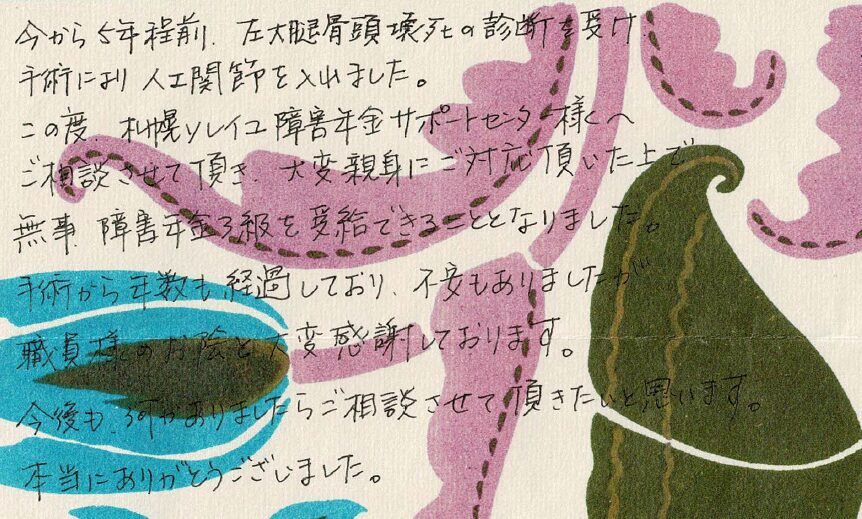 今から5年程前、左大腿骨頭壊死の診断を受け
手術により人工関節を入れました。
この度、札幌ソレイユ障害年金サポートセンター様へ
ご相談させて頂き、大変親身にご対応頂いた上で
無事、障害年金3級を受給できることとなりました。
手術から年数も経過しており、不安もありましたが
職員様のお陰と大変感謝しております。
今後も、何かありましたらご相談させて頂きたいと思います。
本当にありがとうございました。